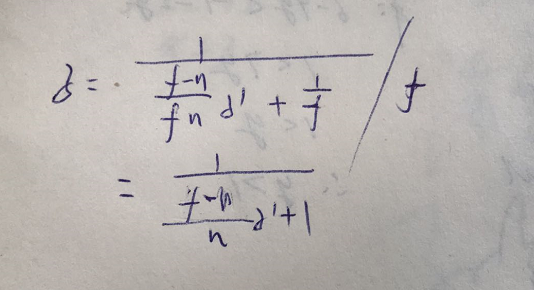 d = 1 / ((f-n)/(fn) d' + 1/f) / f
= 1 / ((f-n)/n d' + 1)